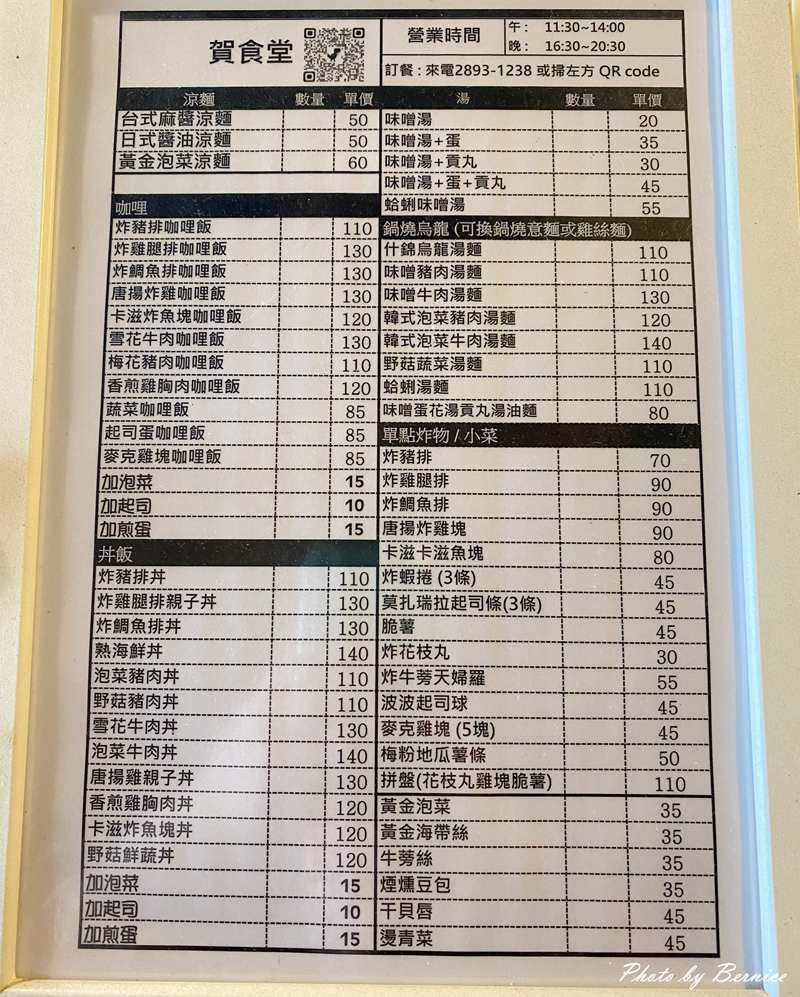 賀食堂
營業時間
午： 11:30~14:00
晚： 16:30~20:30
訂餐：來電2893-1238 或掃左方 QR code
涼麵 數量 單價
台式麻醬涼麵 50
日式醬油涼麵 50
黃金泡菜涼麵 60
咖哩
炸豬排咖哩飯 110
炸雞腿排咖哩飯 130
炸鯛魚排咖哩飯 130
唐揚炸雞咖哩飯 130
卡滋炸魚塊咖哩飯 120
雪花牛肉咖哩飯 130
梅花豬肉咖哩飯 110
香煎雞胸肉咖哩飯 120
蔬菜咖哩飯 85
起司蛋咖哩飯 85
麥克雞塊咖哩飯 85
加泡菜 15
加起司 10
加煎蛋 15
丼飯
炸豬排丼 110
炸雞腿排親子丼 130
炸鯛魚排丼 130
熟海鮮丼 140
泡菜豬肉丼 110
野菇豬肉丼 110
雪花牛肉丼 130
泡菜牛肉丼 140
唐揚雞親子丼 130
香煎雞胸肉丼 120
卡滋炸魚塊丼 120
野菇鮮蔬丼 120
加泡菜 15
加起司 10
加煎蛋 15
湯 數量 單價
味噌湯 20
味噌湯+蛋 35
味噌湯+貢丸 30
味噌湯+蛋+貢丸 45
蛤蜊味噌湯 55
鍋燒烏龍 (可換鍋燒意麵或雞絲麵)
什錦烏龍湯麵 110
味噌豬肉湯麵 110
味噌牛肉湯麵 130
韓式泡菜豬肉湯麵 120
韓式泡菜牛肉湯麵 140
野菇蔬菜湯麵 110
蛤蜊湯麵 110
味噌蛋花湯貢丸湯油麵 80
單點炸物 / 小菜
炸豬排 70
炸雞腿排 90
炸鯛魚排 90
唐揚炸雞塊 90
卡滋卡滋魚塊 80
炸蝦捲 (3條) 45
莫扎瑞拉起司條(3條) 45
脆薯 45
炸花枝丸 30
炸牛蒡天婦羅 55
波波起司球 45
麥克雞塊 (5塊) 45
梅粉地瓜薯條 50
拼盤(花枝丸雞塊脆薯) 110
黃金泡菜 35
黃金海帶絲 35
牛蒡絲 35
煙燻豆包 35
干貝唇 45
燙青菜 45
Photo by Bernice